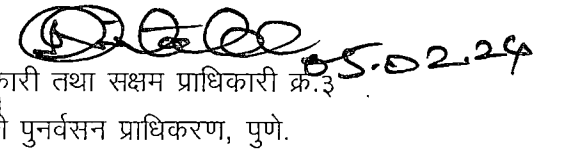 05.02.24
कारी तथा सक्षम प्राधिकारी क्र.३
पुनर्वसन प्राधिकरण, पुणे.